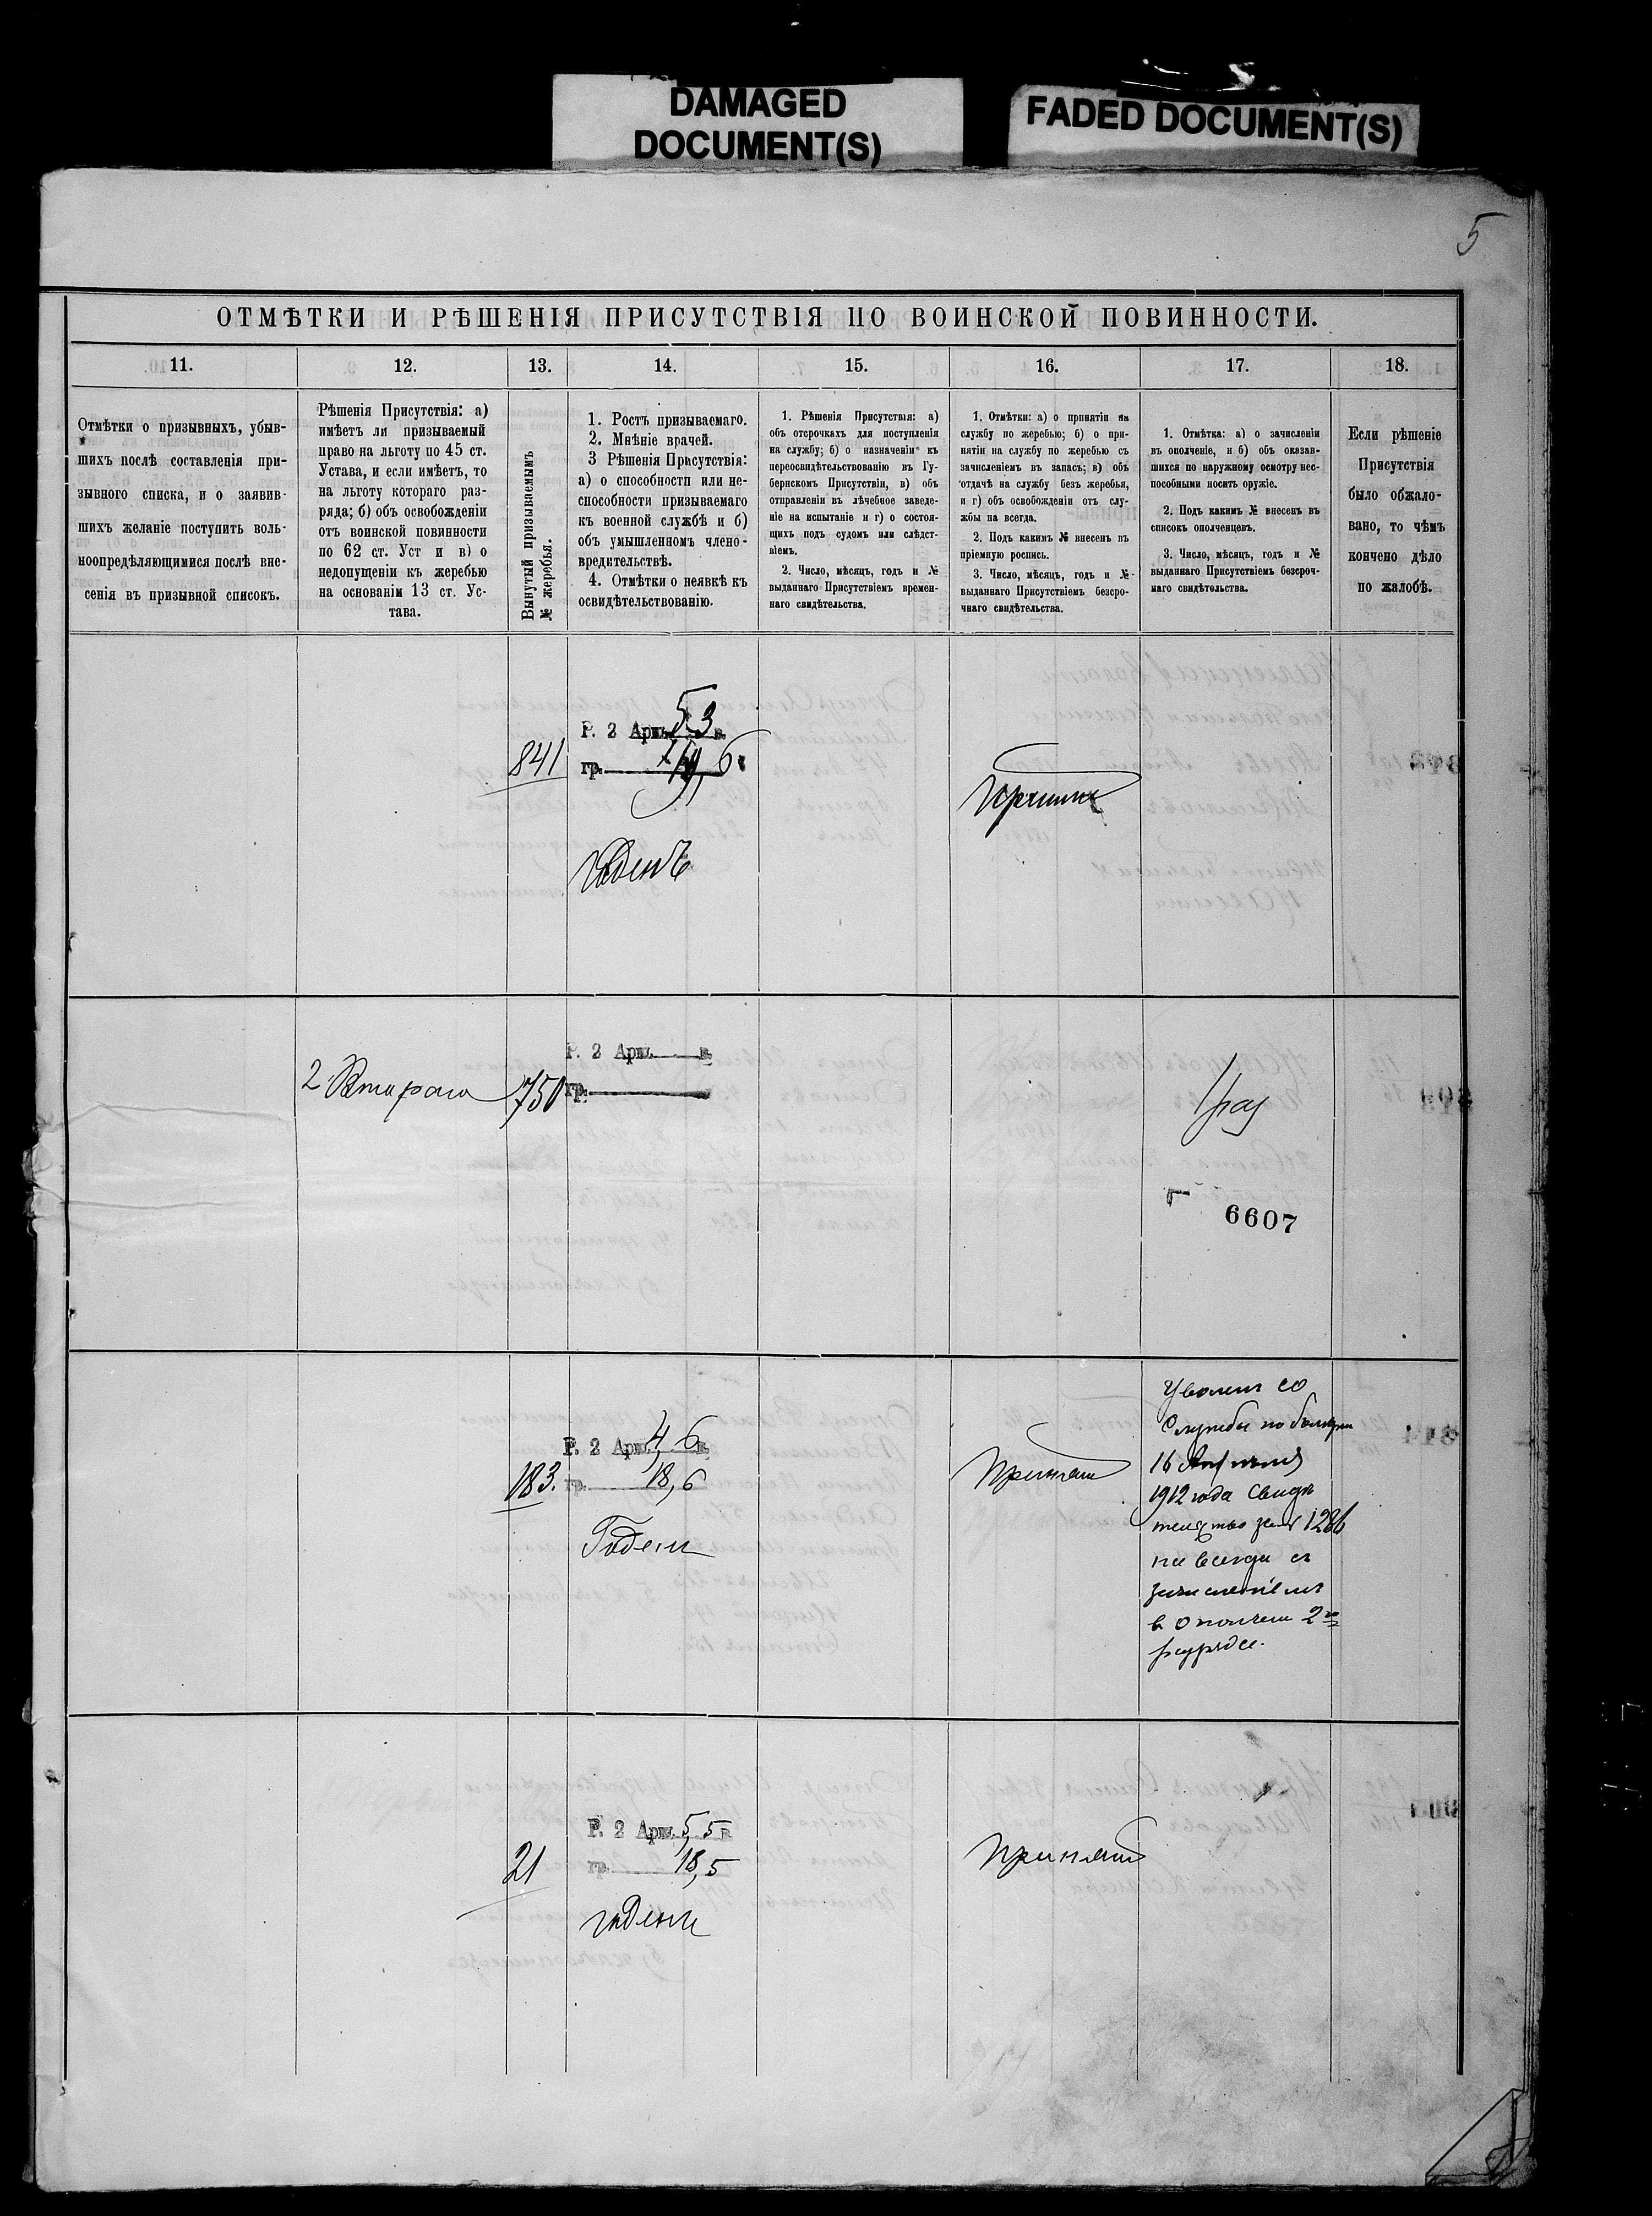 DAMAGED
DOCUMENT(S)
FADED DOCUMENT(S)
5
ОТМѢТКИ И РѢШЕНІЯ ПРИСУТСТВІЯ ПО ВОИНСКОЙ ПОВИННОСТИ.
11.
12.
13.
14.
15.
16.
17.
18.
Отмѣтки о призывныхъ, убыв-
шихъ послѣ составленія при-
зывного списка, и о заявив-
шихъ желаніе поступить воль-
ноопредѣляющимися послѣ вне-
сенія въ призывной списокъ.
Рѣшенія Присутствія: а)
имѣетъ ли призываемый
право на льготу по 45 ст.
Устава, и если имѣетъ, то
на льготу котораго раз-
ряда; б) объ освобожденіи
отъ воинской повинности
по 62 ст. Уст и в) о
недопущеніи къ жеребью
на основаніи 13 ст. Ус-
тава.
Вынутый призываемымъ
№ жеребья.
1. Ростъ призываемаго.
2. Мнѣніе врачей.
3 Рѣшенія Присутствія:
а) о способности или не-
способности призываемаго
къ военной службѣ и б)
объ умышленномъ члено-
вредительствѣ.
4. Отмѣтки о неявкѣ къ
освидѣтельствованію.
1. Рѣшенія Присутствія: а)
объ отсрочкахъ для поступленія
на службу; б) о назначеніи къ
переосвидѣтельствованію въ Гу-
бернскомъ Присутствіи, в) объ
отправленіи въ лѣчебное заведе-
ніе на испытаніе и г) о состоя-
щихъ подъ судомъ или слѣдст-
віемъ.
2. Число, мѣсяцъ, годъ и №
выданнаго Присутствіемъ времен-
наго свидѣтельства.
1. Отмѣтки: а) о принятіи на
службу по жеребью; б) о при-
нятіи на службу по жеребью съ
зачисленіемъ въ запасъ; в) объ
отдачѣ на службу безъ жеребья,
и г) объ освобожденіи отъ слу-
жбы на всегда.
2. Подъ какимъ № внесенъ въ
пріемную роспись.
3. Число, мѣсяцъ, годъ и №
выданнаго Присутствіемъ безсро-
чнаго свидѣтельства.
1. Отмѣтка: а) о зачисленіи
въ ополченіе, и б) объ оказав-
шихся по наружному осмотру нес-
пособными носить оружіе.
2. Подъ какимъ № внесенъ въ
списокъ ополченцевъ.
3. Число, мѣсяцъ, годъ и №
выданнаго Присутствіемъ безсроч-
наго свидѣтельства.
Если рѣшеніе
Присутствія
было обжало-
вано, то чѣмъ
кончено дѣло
по жалобѣ.
841
Р. 2 Арш. 5,3 в.
гр. 19,6
Годенъ
Принятъ
2. Втораго
750
Р. 2 Арш. в.
гр.
1 раз
6607
183.
Р. 2 Арш. 4,6 в.
гр. 18,6
Годенъ
Принятъ
Уволенъ со
Службы по болѣзни
16 Апрѣля
1912 года Свидѣ
тельство за № 1286
на всегда съ
зачисленіемъ
в ополчен 2го
разряда.
21
Р. 2 Арш. 5,5 в.
гр. 18,5
годенъ
Принятъ